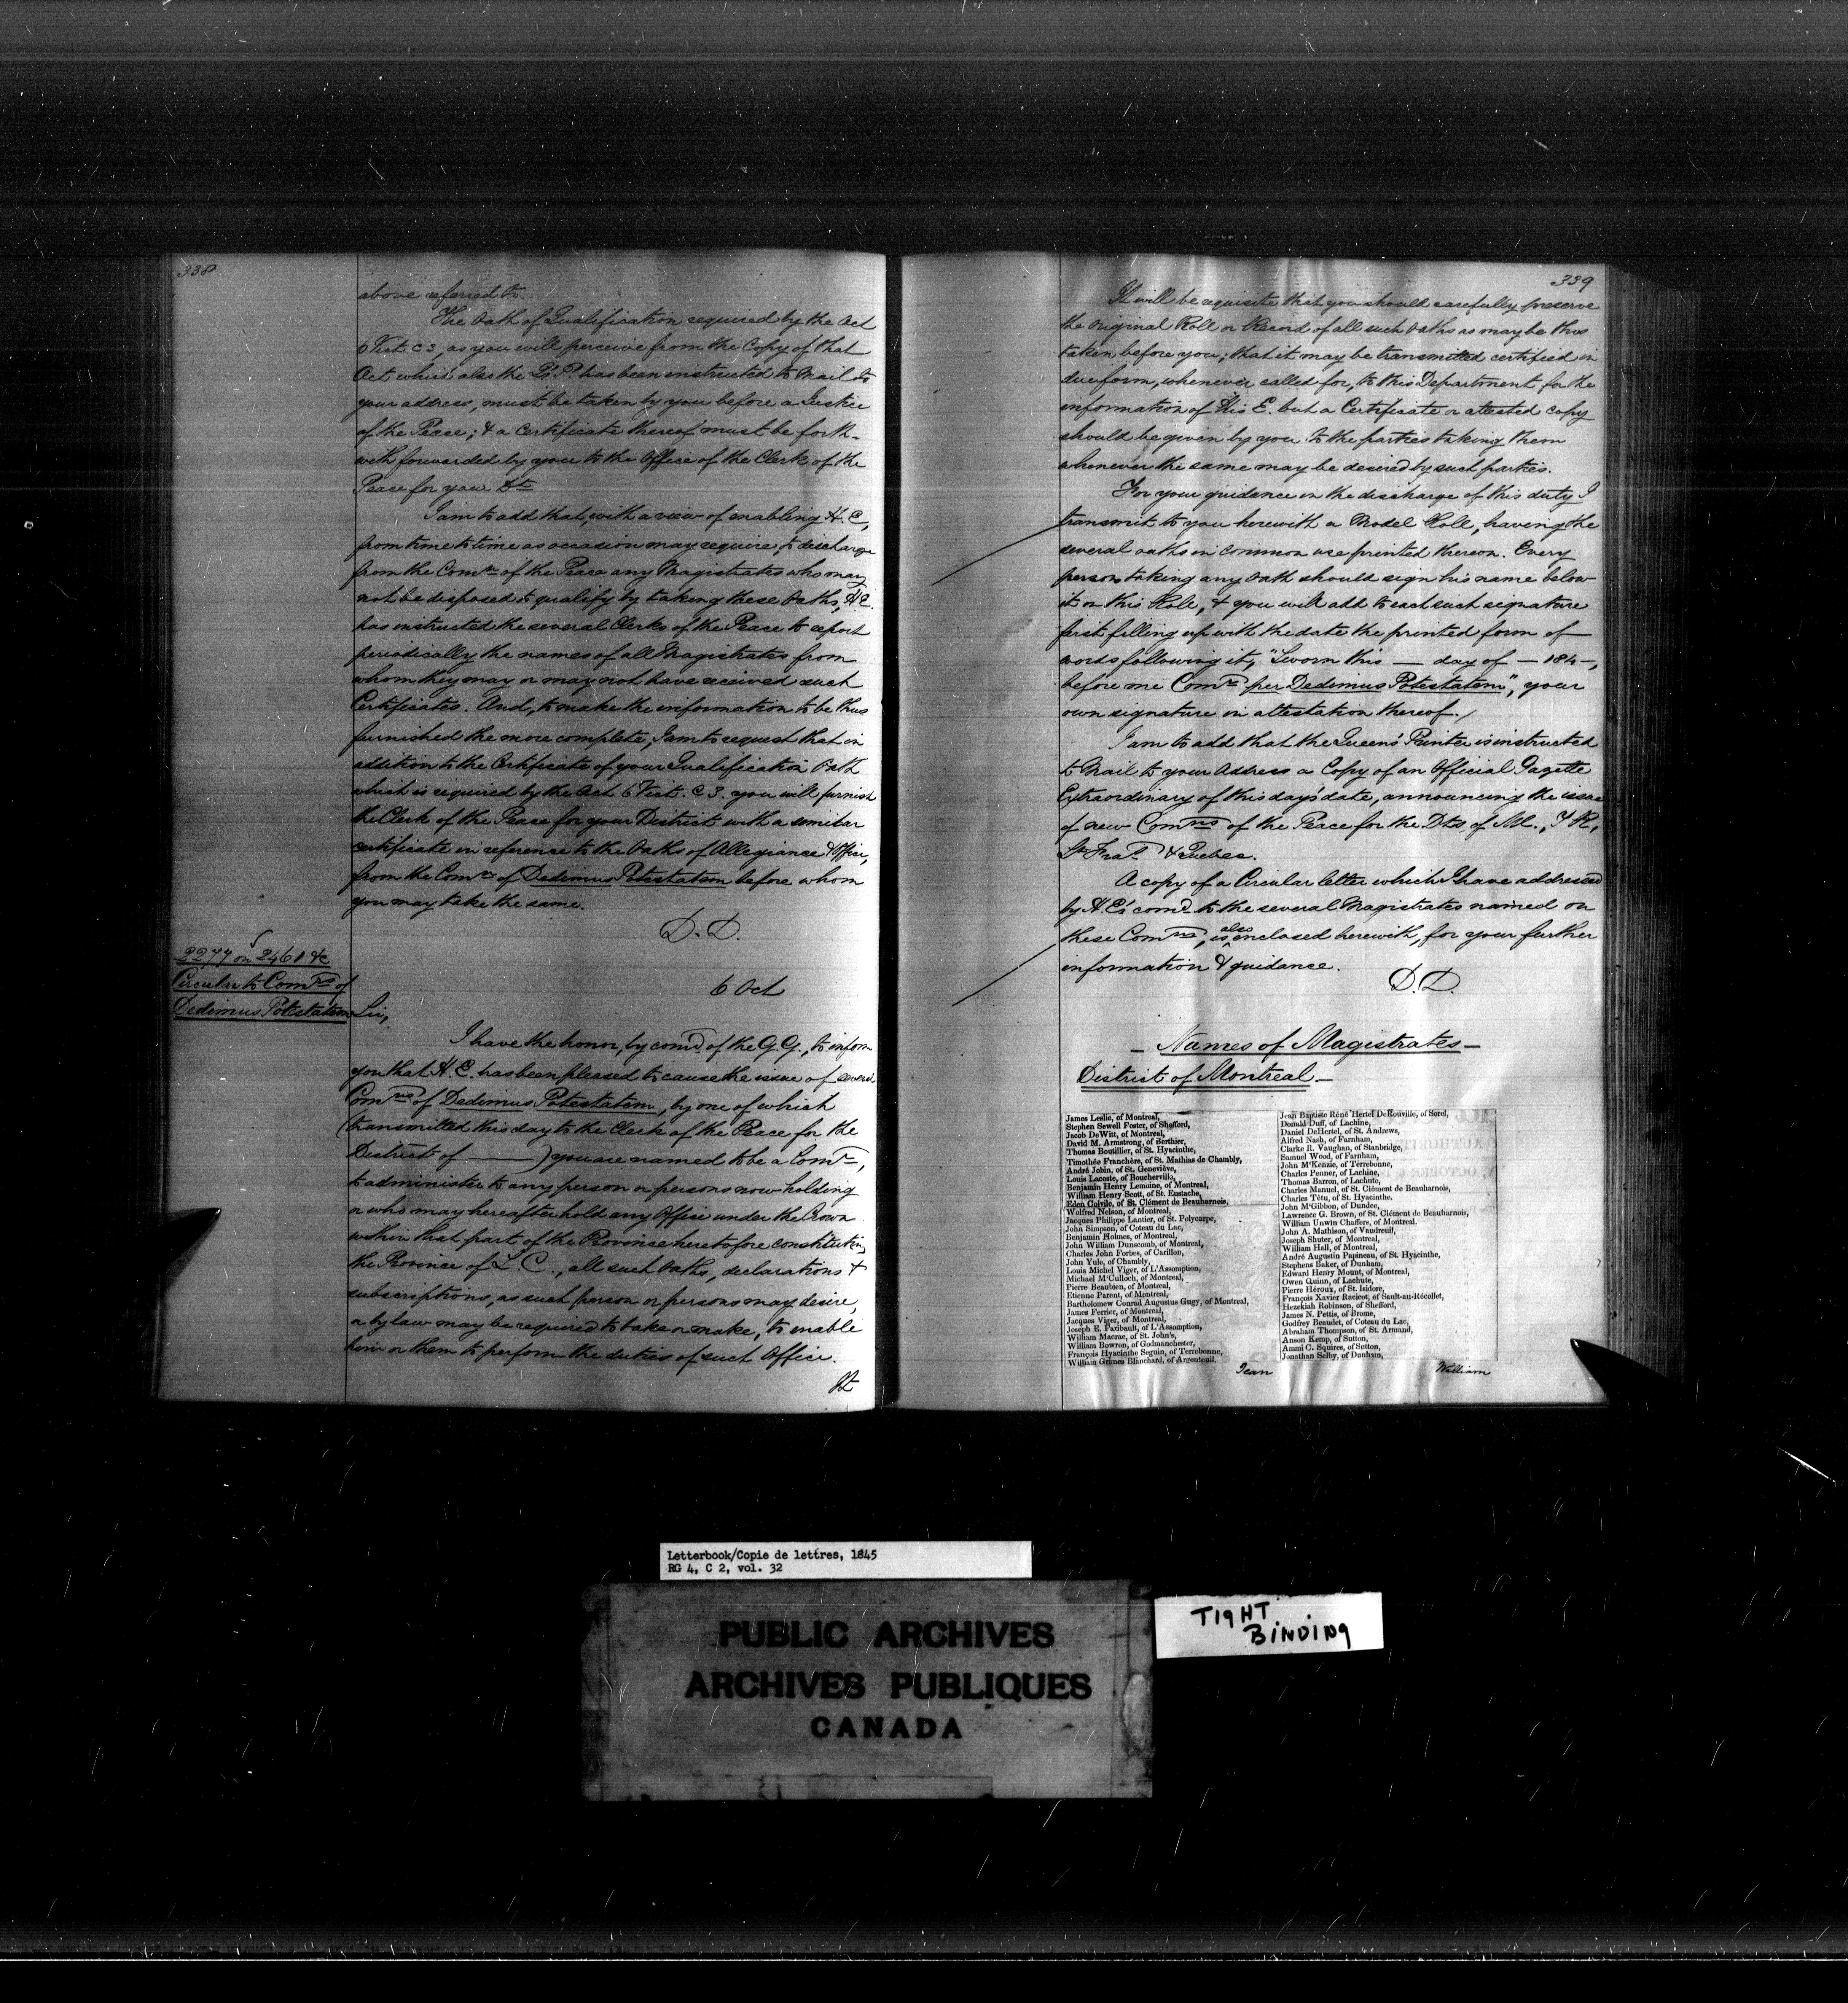 338
above referred to.
The Oath of Qualification required by the Act
6 Vict. c 3, as you will perceive from the Copy of that
Act which also the Q's P. has been instructed to Mail to
your address, must be taken by you before a Justice
of the Peace; & a Certificate thereof must be forth-
with forwarded by you to the Office of the Clerk of the
Peace for your Dt.
I am to add that, with a view of enabling H. E,
from time to time as occasion may require, to discharge
from the Comn of the Peace any Magistrates who may
not be disposed to qualify by taking these Oaths, H.E.
has instructed the several Clerks of the Peace to report
periodically the names of all Magistrates from
whom they may or may not have received such
Certificates. And, to make the information to be thus
furnished the more complete, I am to request that in
addition to the Certificate of your Qualification Oath
which is required by the Act 6 Vict. c 3. you will furnish
the Clerk of the Peace for your District with a similar
certificate in reference to the Oaths of Allegiance & Office,
from the Comr of Dedimus Potestatem before whom
you may take the same.
D. D.
2277 on 2461 &c
Circular to Comrs of
Dedimus Potestatem
6 Oct
Sir,
I have the honor, by comd of the G.G., to inform
you that H. E. has been pleased to cause the issue of several
Comns of Dedimus Potestatem, by one of which
(transmitted this day to the Clerk of the Peace for the
District of ——) you are named to be a Comr,
to administer to any person or persons now holding
or who may hereafter hold any Office under the Crown
within that part of the Province heretofore constituting
the Province of L. C., all such Oaths, declarations &
subscriptions, as such person or persons may desire,
or by law may be required to take or make, to enable
him or them to perform the duties of such Office.
It
339
It will be requisite that you should carefully preserve
the original Roll or Record of all such Oaths as may be thus
taken before you; that it may be transmitted certified in
due form, whenever called for, to this Department for the
information of His E. but a Certificate or attested copy
should be given by you to the parties taking them
whenever the same may be desired by such parties.
For your guidance in the discharge of this duty I
transmit to you herewith a Model Roll, having the
several oaths in common use printed thereon. Every
person taking any Oath should sign his name below
it on this Roll, & you will add to each such signature
first filling up with the date the printed form of
words following it, "Sworn this — day of — 184-,
before me Comr per Dedimus Potestatem", your
own signature in attestation thereof.
I am to add that the Queen's Printer is instructed
to Mail to your Address a Copy of an Official Gazette
Extraordinary of this day's date, announcing the issue
of new Comns of the Peace for the Dts of Ml., T R,
St Fras & Quebec.
A copy of a Circular letter which I have addressed
by H. E's comd to the several Magistrates named on
these Comns, is also enclosed herewith, for your further
information & guidance.
D. D.
— Names of Magistrates —
District of Montreal —
James Leslie, of Montreal,
Stephen Sewell Foster, of Shefford,
Jacob DeWitt, of Montreal,
David M. Armstrong, of Berthier,
Thomas Boutillier, of St. Hyacinthe,
Timothée Franchère, of St. Mathias de Chambly,
André Jobin, of St. Geneviève,
Louis Lacoste, of Boucherville,
Benjamin Henry Lemoine, of Montreal,
William Henry Scott, of St. Eustache,
Eden Colvile, of St. Clément de Beauharnois,
Wolfred Nelson, of Montreal,
Jacques Philippe Lantier, of St. Polycarpe,
John Simpson, of Coteau du Lac,
Benjamin Holmes, of Montreal,
John William Dunscomb, of Montreal,
Charles John Forbes, of Carillon,
John Yule, of Chambly,
Louis Michel Viger, of L'Assomption,
Michael M'Culloch, of Montreal,
Pierre Beaubien, of Montreal,
Etienne Parent, of Montreal,
Bartholomew Conrad Augustus Gugy, of Montreal,
James Ferrier, of Montreal,
Jacques Viger, of Montreal,
Joseph E. Faribault, of L'Assomption,
William Macrae, of St. John's,
William Bowron, of Godmanchester,
François Hyacinthe Seguin, of Terrebonne,
William Grimes Blanchard, of Argenteuil.
Jean
Jean Baptiste René Hertel DeRouville, of Sorel,
Donald Duff, of Lachine,
Daniel DeHertel, of St. Andrews,
Alfred Nash, of Farnham,
Clarke R. Vaughan, of Stanbridge,
Samuel Wood, of Farnham,
John M'Kenzie, of Terrebonne,
Charles Penner, of Lachine,
Thomas Barron, of Lachute,
Charles Manuel, of St. Clément de Beauharnois,
Charles Têtu, of St. Hyacinthe.
John M'Gibbon, of Dundee,
Lawrence G. Brown, of St. Clément de Beauharnois,
William Unwin Chaffers, of Montreal.
John A. Mathison, of Vaudreuil,
Joseph Shuter, of Montreal,
William Hall, of Montreal,
André Augustin Papineau, of St. Hyacinthe,
Stephens Baker, of Dunham,
Edward Henry Mount, of Montreal,
Owen Quinn, of Lachute,
Pierre Héroux, of St. Isidore,
François Xavier Racicot, of Sault-au-Récollet,
Hezekiah Robinson, of Shefford,
James N. Pettis, of Brome,
Godfrey Beaudet, of Coteau du Lac,
Abraham Thompson, of St. Armand,
Anson Kemp, of Sutton,
Ammi C. Squires, of Sutton,
Jonathan Selby, of Dunham,
William
Letterbook/Copie de lettres, 1845
RG 4, C 2, vol. 32
PUBLIC ARCHIVES
ARCHIVES PUBLIQUES
CANADA
TIGHT
BINDING